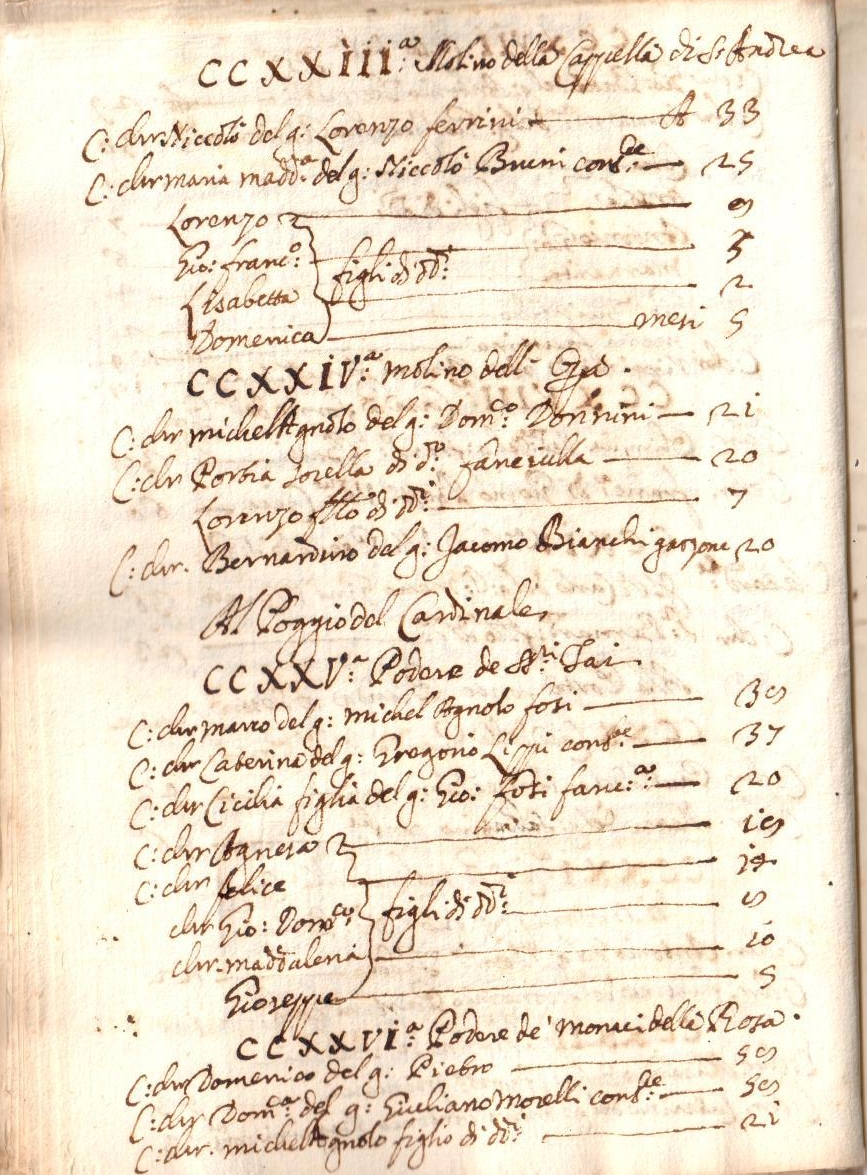 CCXXIIIª: Molino della Cappella di S: Andrea
C: chr Niccolò del q: Lorenzo ferrini A 33
C: chr maria madd.ª del q: Niccolò Bruni cons.te 25
Lorenzo 9
Gio: franc.º figli di dd.i 5
Lisabetta 2
Domenica mesi 5
CCXXIVª: molino dell'
C: chr michelAgnolo del q: Dom.co Donnini 21
C: chr Porbia sorella di d.º fanciulla 20
Lorenzo fllo di dd.i 7
C: chr. Bernardino del q: Jacomo Bianchi garzone 20
Al Poggio del Cardinale
CCXXVª: Podere de SS.ri Tai
C: chr marco del q: michel Agnolo fosi 39
C: chr Caterina del q: Gregorio Lippi cons.te 37
C: chr Cicilia figlia del q: Gio: fosi fanc:ª: 20
C: chr Agnesa 19
C: chr felice 14
chr Gio: Dom.co figli di dd.i
chr. maddalena 10
Gioseppe 5
CCXXVIª: Podere de' monaci della Rosa
C: chr Domenico del q: Pietro 59
C: chr Dom.ª del q: Giuliano Morelli cons.te 59
C: chr. michelAgnolo figlio di dd.i 21